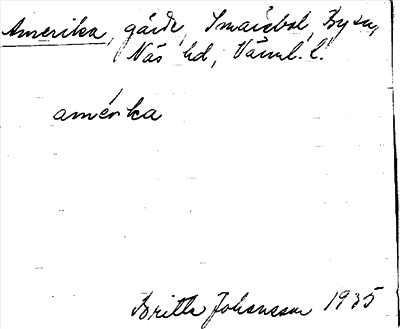 Amerika, gärde, Smaičbol, By sn,
Näs hd, Värml. l.
amérika
Britta Johansson 1935